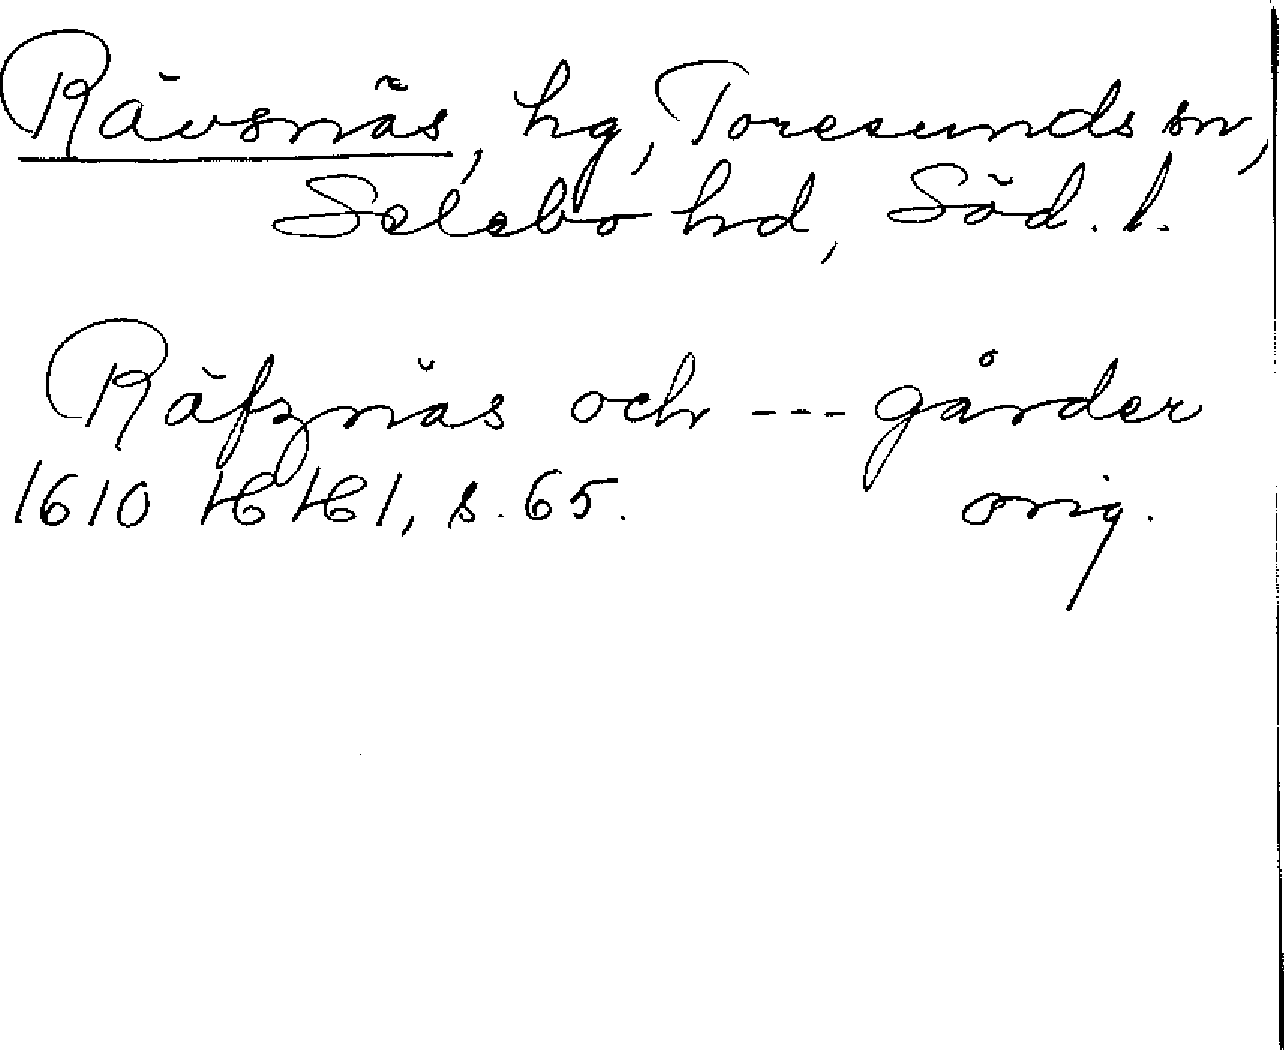 Rävsnäs, hg, Toresunds sn,
Selebo hd, Söd. l.
Räfznäs och --- gårder
1610 HH1, s. 65. orig.